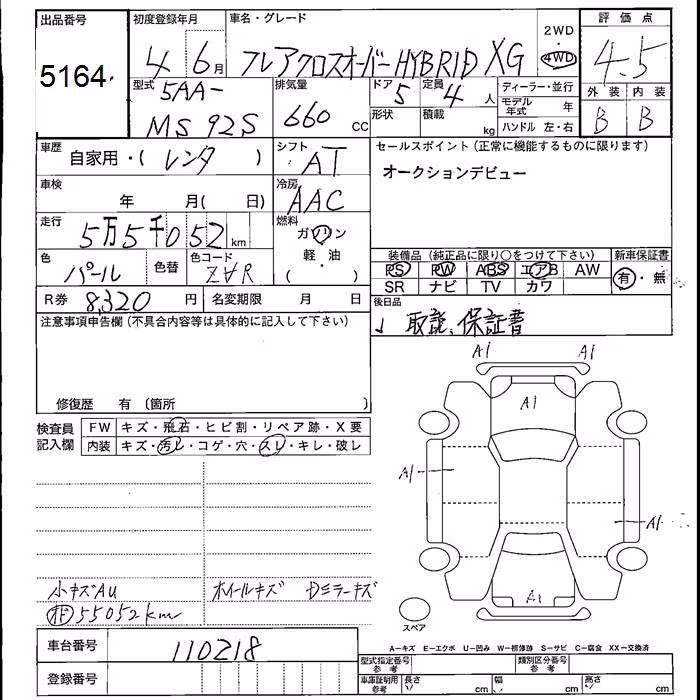 出品番号 初度登録年月 車名・グレード 評価点
5164 4年6月 フレアクロスオーバーHYBRID XG 2WD 4WD 4.5
外装 内装
B B
型式 5AA-MS92S 排気量 660 CC ドア 5 定員 4人 ディーラー・並行
形状 積載 kg モデル年式 年
ハンドル 左・右
車歴 自家用・( レンタ ) シフト AT セールスポイント (正常に機能するものに限ります)
オークションデビュー
車検 年 月( 日) 冷房 AAC
走行 5万5千052km 燃料 ガソリン
軽・油
( )
色 パール 色替 色コード ZVR
装備品 (純正品に限り○をつけて下さい) 新車保証書
PS PW ABS エアB AW 有・無
SR ナビ TV カワ
R券 8,320円 名変期限 月 日 後日品
↓ 取説、保証書
注意事項申告欄 (不具合内容等は具体的に記入して下さい)
修復歴 有 〔箇所 〕
検査員記入欄 FW キズ・飛石・ヒビ割・リペア跡・X要
内装 キズ・汚レ・コゲ・穴・スリ・キレ・破レ
A1 A1
A1
A1
A1
A1
小キズAU ホイールキズ Dミラーキズ
55052km
スペア
車台番号 110218
登録番号
A-キズ E-エクボ U-凹み W-補修跡 S-サビ C-腐食 XX-交換済
型式指定番号 参考 類別区分番号 参考
車庫証明用参考 長さ cm 幅 cm 高さ cm